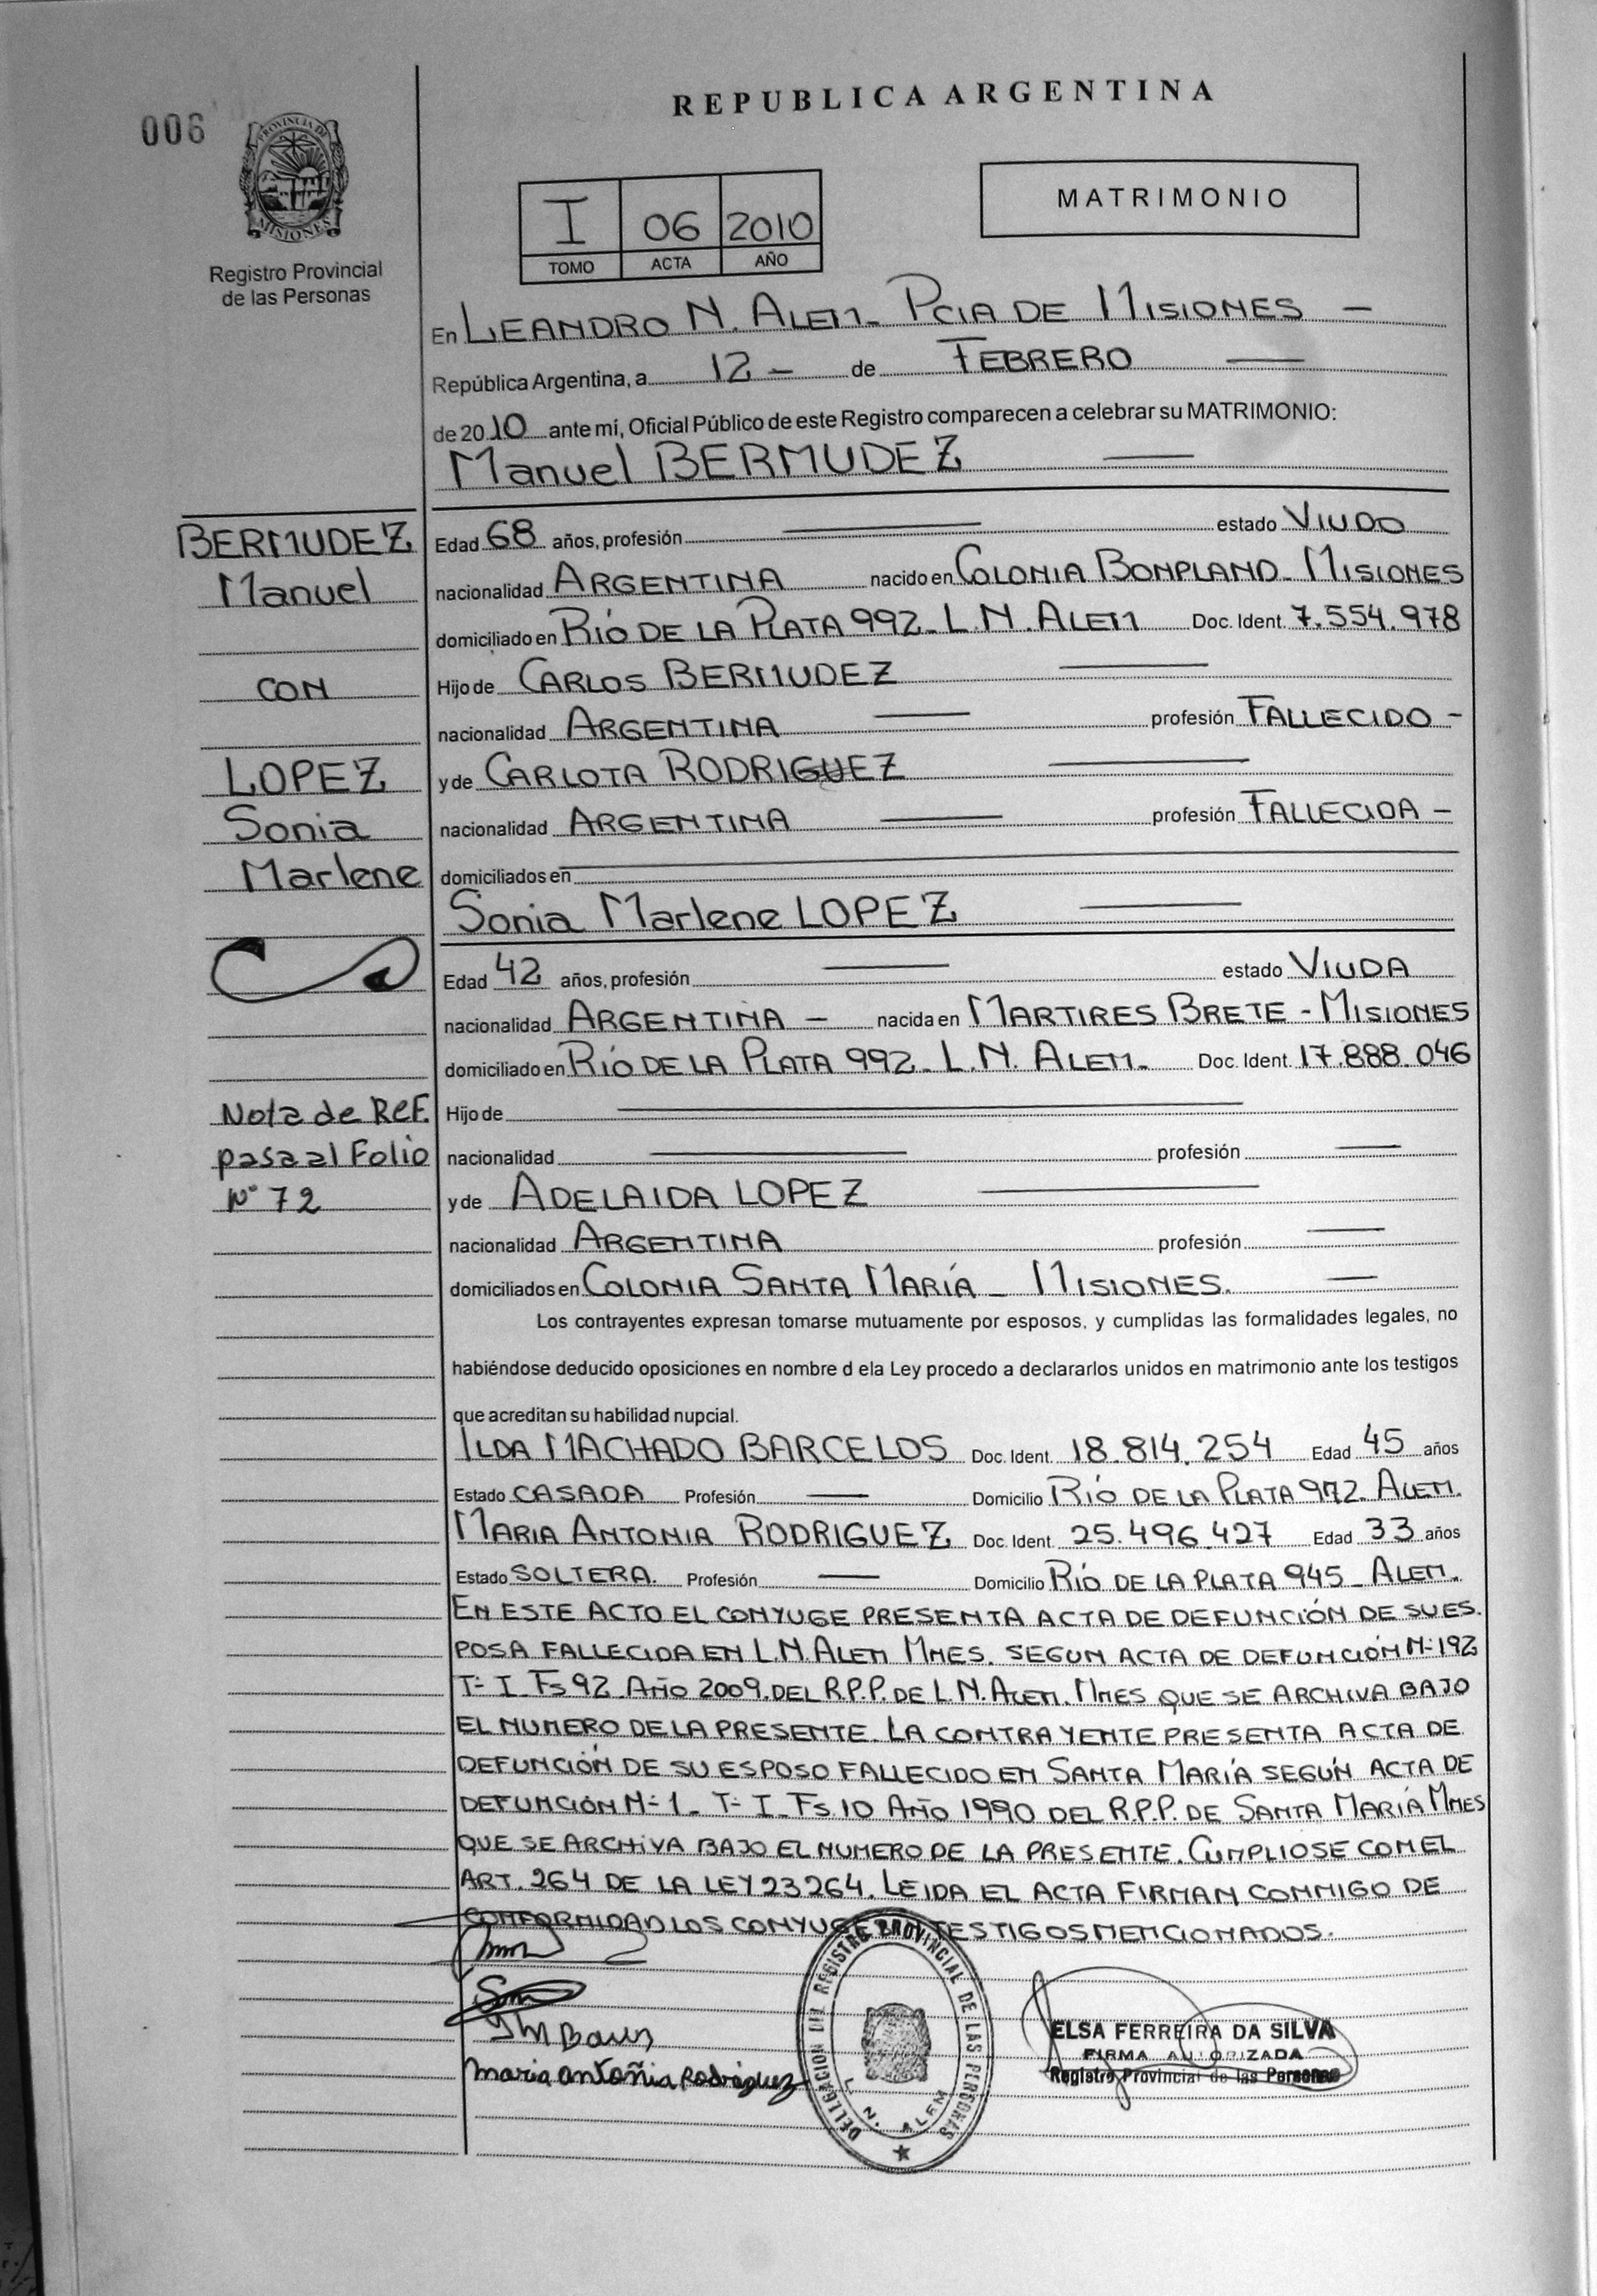 REPUBLICA ARGENTINA
006
PROVINCIA DE
MISIONES
Registro Provincial
de las Personas
MATRIMONIO
I 06 2010
TOMO ACTA AÑO
En LEANDRO N. ALEM - PCIA DE MISIONES —
República Argentina, a 12 - de FEBRERO —
de 2010 ante mí, Oficial Público de este Registro comparecen a celebrar su MATRIMONIO:
Manuel BERMUDEZ —
BERMUDEZ
Manuel
CON
LOPEZ
Sonia
Marlene
Edad 68 años, profesión — estado VIUDO
nacionalidad ARGENTINA nacido en COLONIA BONPLAND - MISIONES
domiciliado en RÍO DE LA PLATA 992 - L.N. ALEM Doc. Ident. 7.554.978
Hijo de CARLOS BERMUDEZ —
nacionalidad ARGENTINA — profesión FALLECIDO -
y de CARLOTA RODRIGUEZ —
nacionalidad ARGENTINA — profesión FALLECIDA -
domiciliados en —
Sonia Marlene LOPEZ —
Edad 42 años, profesión — estado VIUDA
nacionalidad ARGENTINA - nacida en MARTIRES BRETE - MISIONES
domiciliado en RÍO DE LA PLATA 992 - L.N. ALEM - Doc. Ident. 17.888.046
Nota de Ref.
pasa al Folio
N° 72
Hijo de —
nacionalidad — profesión —
y de ADELAIDA LOPEZ —
nacionalidad ARGENTINA profesión —
domiciliados en COLONIA SANTA MARÍA - MISIONES. —
Los contrayentes expresan tomarse mutuamente por esposos, y cumplidas las formalidades legales, no
habiéndose deducido oposiciones en nombre d ela Ley procedo a declararlos unidos en matrimonio ante los testigos
que acreditan su habilidad nupcial.
ILDA MACHADO BARCELOS Doc. Ident. 18.814.254 Edad 45 años
Estado CASADA Profesión — Domicilio RÍO DE LA PLATA 972 ALEM.
MARIA ANTONIA RODRIGUEZ Doc. Ident. 25.496.427 Edad 33 años
Estado SOLTERA. Profesión — Domicilio RÍO DE LA PLATA 945 - ALEM.
EN ESTE ACTO EL CONYUGE PRESENTA ACTA DE DEFUNCIÓN DE SU ES.
POSA FALLECIDA EN L.N. ALEM MNES. SEGUN ACTA DE DEFUNCIÓN N- 192
T- I Fs 92 AÑO 2009. DEL R.P.P. DE L.N. ALEM. MNES QUE SE ARCHIVA BAJO
EL NUMERO DE LA PRESENTE. LA CONTRAYENTE PRESENTA ACTA DE
DEFUNCIÓN DE SU ESPOSO FALLECIDO EN SANTA MARÍA SEGÚN ACTA DE
DEFUNCIÓN N- 1 - T- I - Fs 10 AÑO 1990 DEL R.P.P. DE SANTA MARÍA MNES
QUE SE ARCHIVA BAJO EL NUMERO DE LA PRESENTE. CUMPLIOSE CON EL
ART. 264 DE LA LEY 23264. LEIDA EL ACTA FIRMAN CONMIGO DE
CONFORMIDAD LOS CONYUGES TESTIGOS MENCIONADOS.
Maria Antoñia Rodriguez
DELEGACION DEL REGISTRO PROVINCIAL DE LAS PERSONAS
L. N. ALEM
ELSA FERREIRA DA SILVA
FIRMA AUTORIZADA
Registro Provincial de las Personas